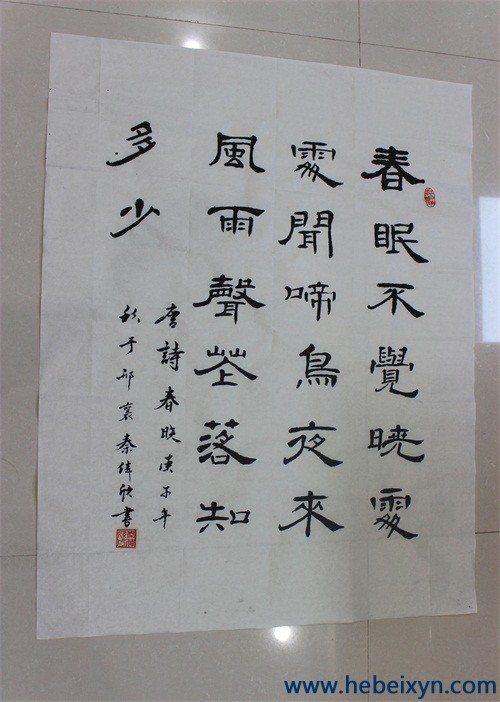 春眠不覺曉處
處聞啼鳥夜來
風雨聲花落知
多少
唐詩春晚庚子年
秋于邢襄秦偉欣書
www.hebeixyn.com